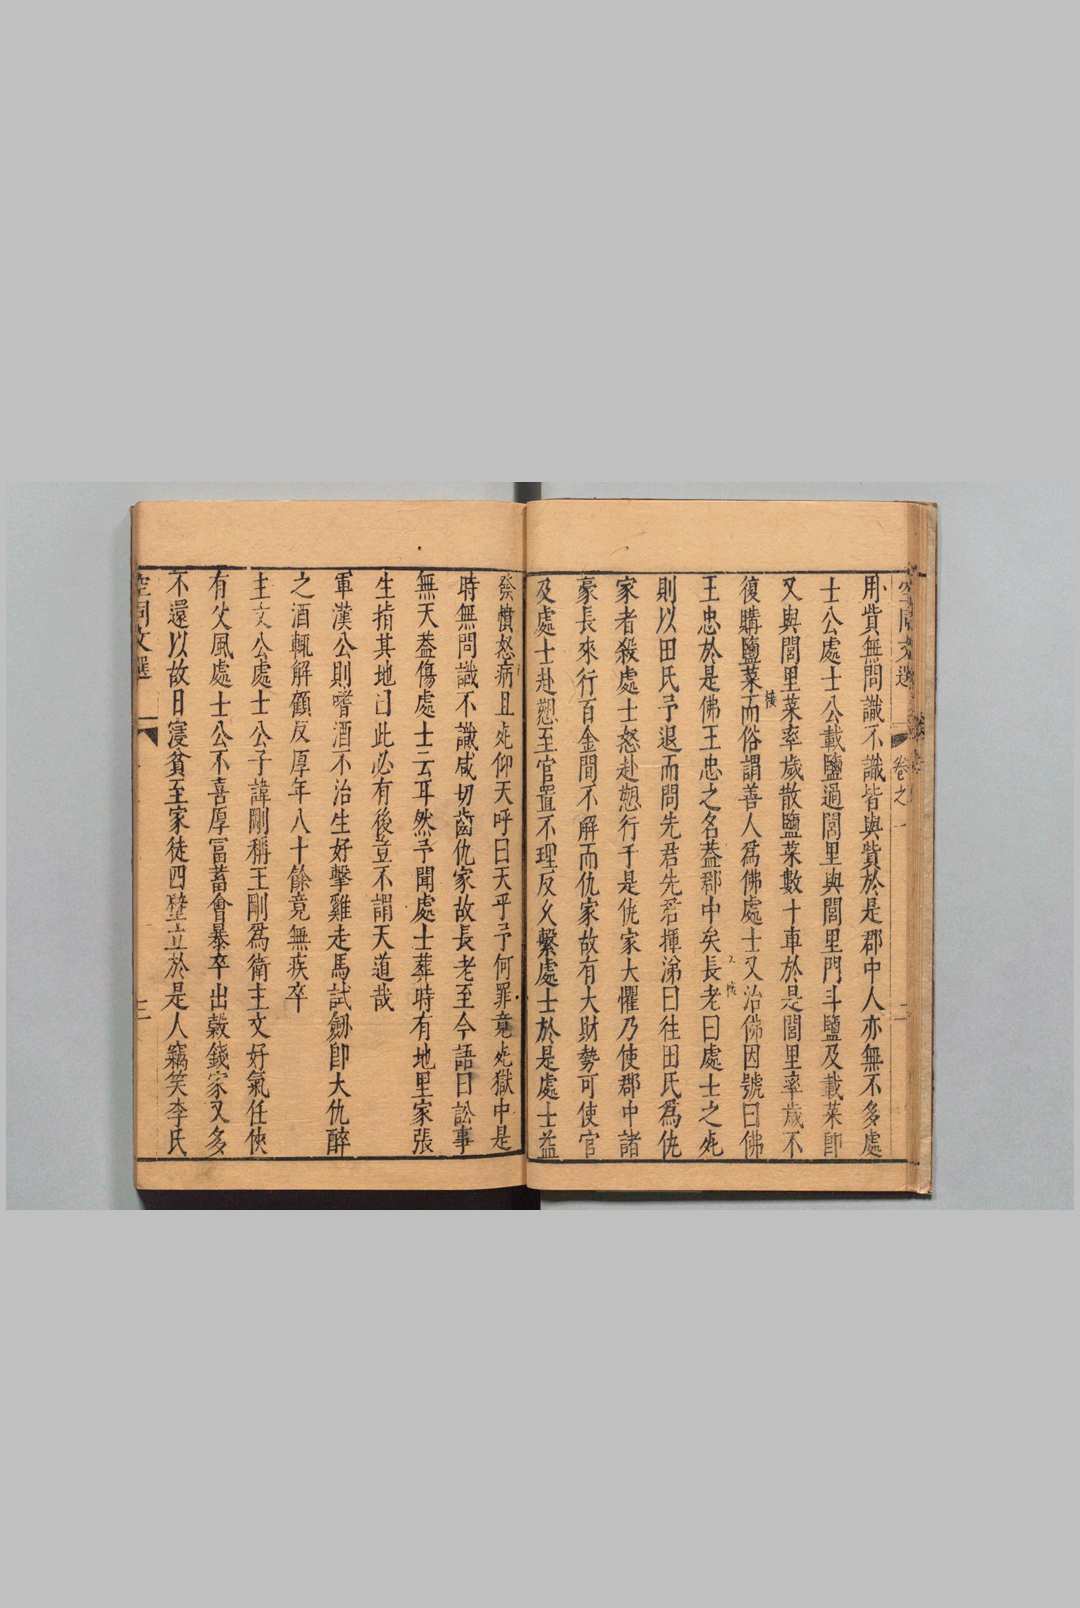 空同文選 卷之一 二
用貲無問識不識皆與貲於是郡中人亦無不多處
士公處士公載鹽過閭里與閭里門斗鹽及載菜即
又與閭里菜率歲散鹽菜數十車於是閭里率歲不
復購鹽菜而俗謂善人爲佛處士又治佛因號曰佛
王忠於是佛王忠之名葢郡中矣長老曰處士之死
則以田氏予退而問先君先君揮涕曰往田氏爲仇
家者殺處士怒赴愬行于是仇家大懼乃使郡中諸
豪長來行百金間不解而仇家故有大財勢可使官
及處士赴愬至官置不理反乆繫處士於是處士益
發憤怒病且死仰天呼曰天乎予何罪竟死獄中是
時無問識不識咸切齒仇家故長老至今語曰訟事
無天葢傷處士云耳然予聞處士葬時有地里家張
生指其地曰此必有後豈不謂天道哉
軍漢公則嗜酒不治生好擊雞走馬試劒即大仇醉
之酒輒解顧反厚年八十餘竟無疾卒
主文公處士公子諱剛稱王剛爲衛主文好氣任俠
有父風處士公不喜厚冨蓄會暴卒出穀錢家又多
不還以故日寖貧至家徒四壁立於是人竊笑李氏
空同文選 三